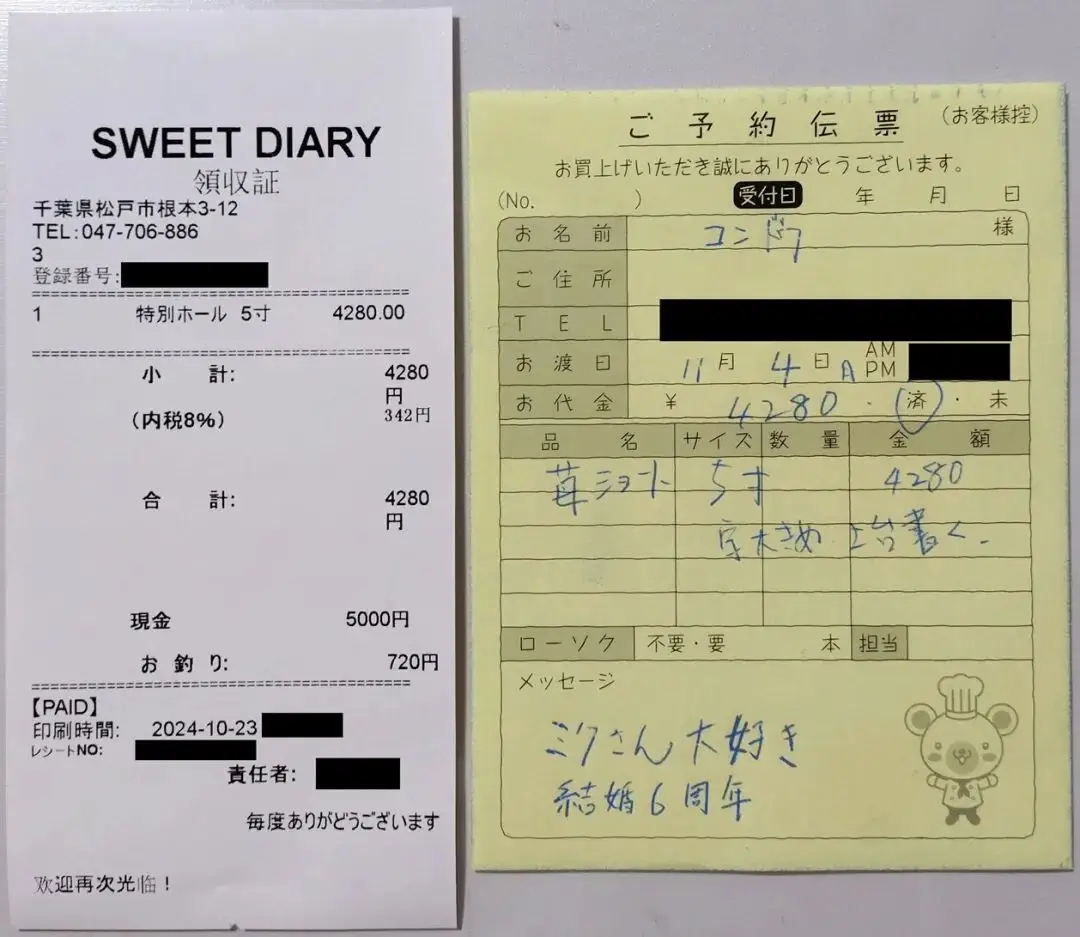 SWEET DIARY
領収証
千葉県松戸市根本3-12
TEL:047-706-886
3
登録番号:
1 特別ホール 5寸 4280.00
小 計: 4280
円
(内税8%) 342円
合 計: 4280
円
現金 5000円
お釣り: 720円
【PAID】
印刷時間: 2024-10-23
レシートNO:
責任者:
毎度ありがどうございます
欢迎再次光临!
ご予約伝票 (お客様控)
お買上げいただき誠にありがとうございます。
(No. ) 受付日 年 月 日
お名前 コンドウ 様
ご住所
TEL
お渡日 11月 4日 A AM
PM
お代金 ¥ 4280 ・ 済 ・ 未
品名 サイズ 数量 金額
苺ショート 5寸 4280
字大きめ 上台書く.
ローソク 不要・要 本 担当
メッセージ
ミクさん大好き
結婚6周年